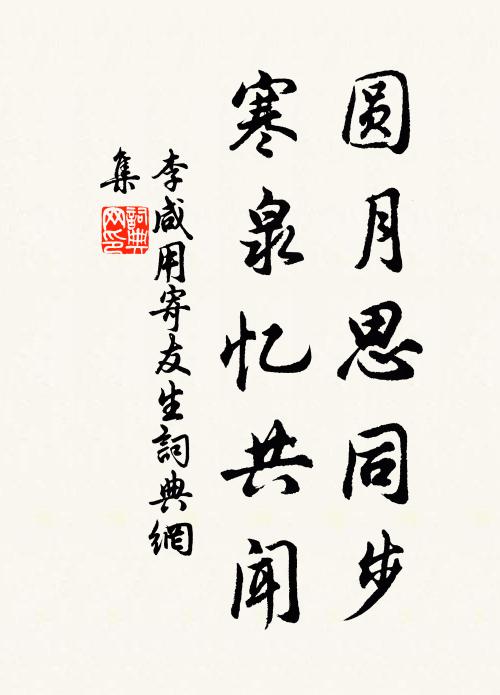 圆月思同步
寒泉忆共闻
李咸用寄友生詞典網
集
詞典网印